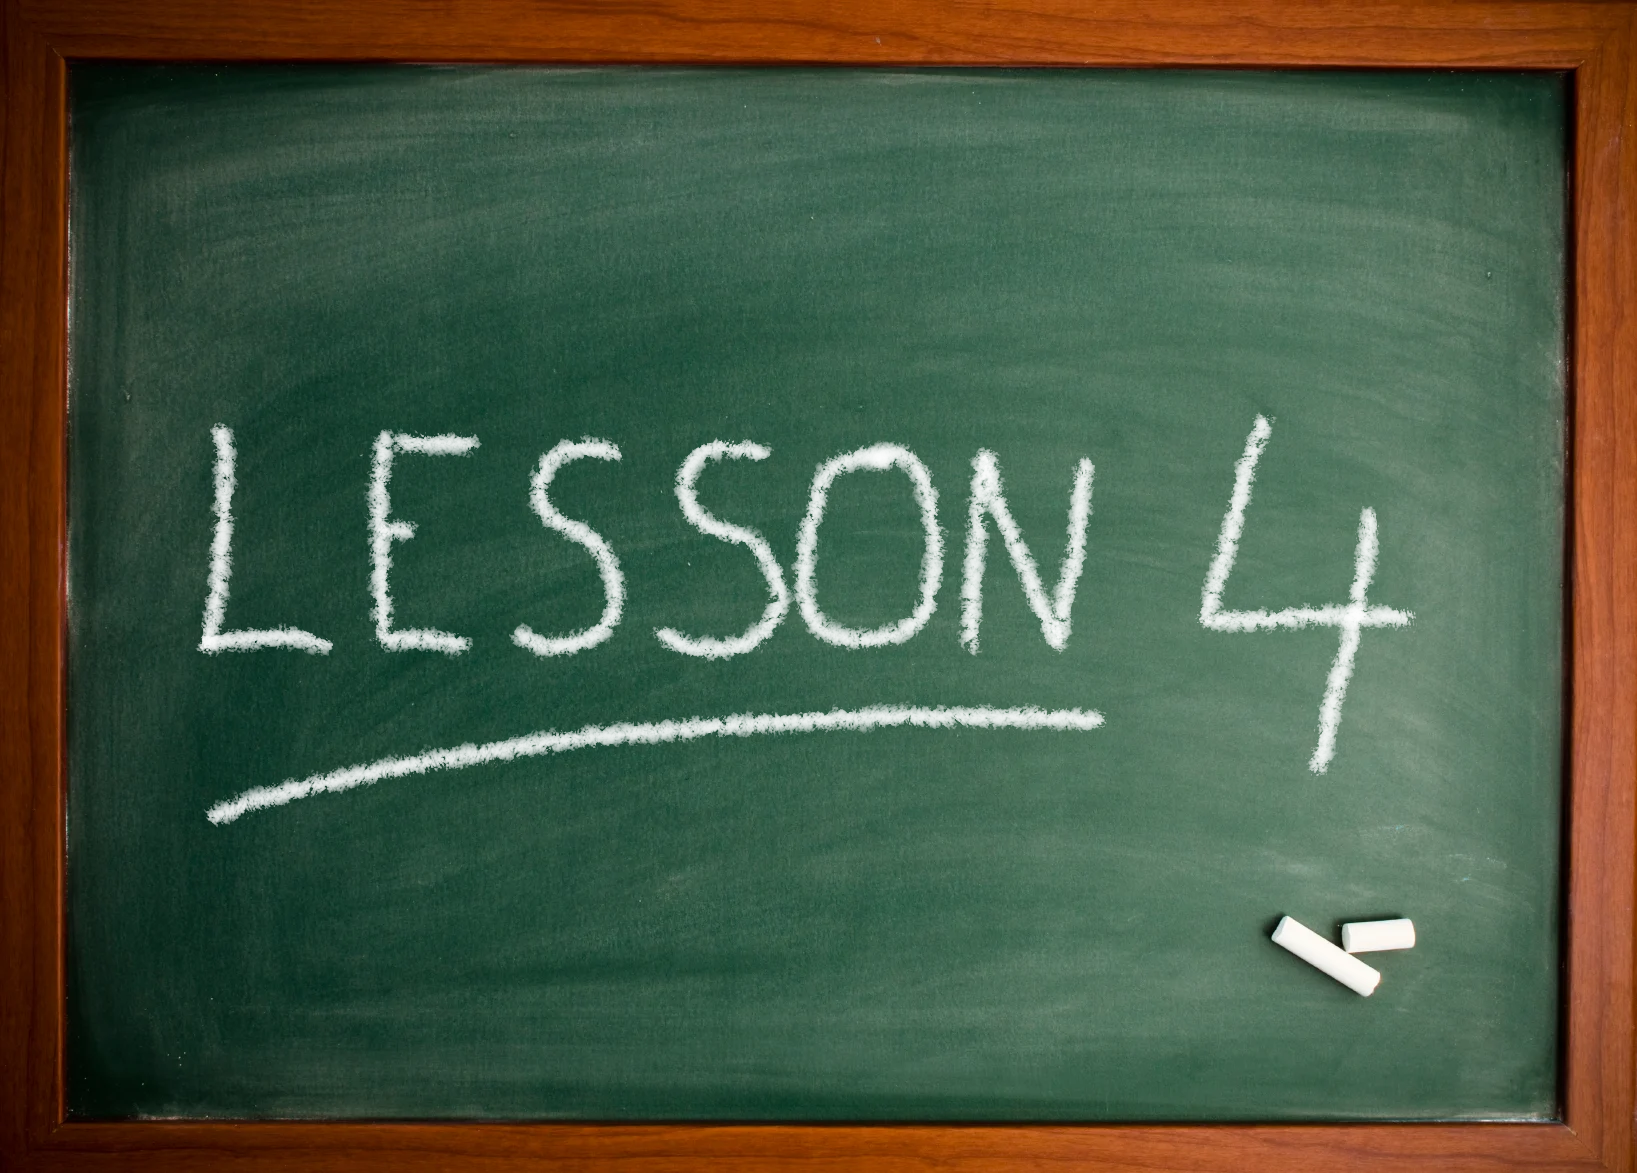 LESSON 4